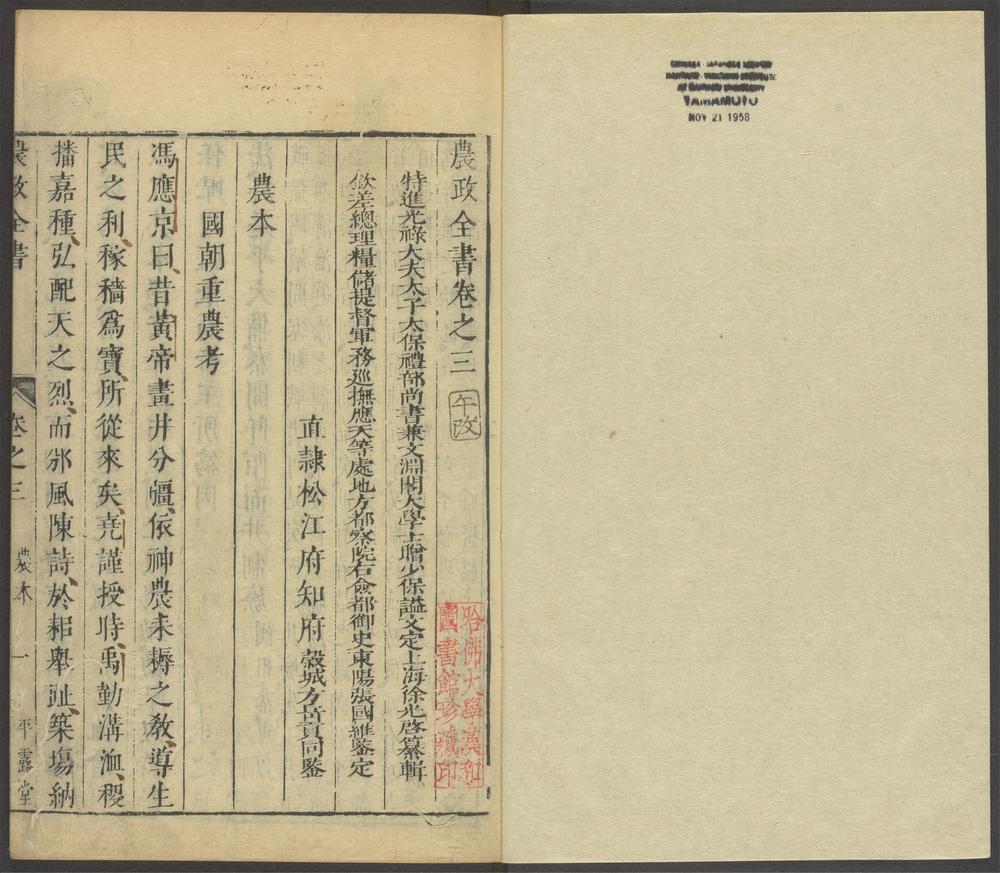 YAMAMOTO
NOV 21 1958
農政全書卷之三
午改
特進光祿大夫太子太保禮部尚書兼文淵閣大學士贈少保謚文定上海徐光啓纂輯
欽差總理糧儲提督軍務巡撫應天等處地方都察院右僉都御史東陽張國維鑒定
直隷松江府知府穀城方岳貢同鑒
農本
國朝重農考
馮應京曰、昔黃帝畫井分疆、依神農耒耨之敎、導生
民之利、稼穡爲寶、所從來矣、堯謹授時、禹勤溝洫、稷
播嘉種、弘配天之烈、而邠風陳詩、於耜舉趾、築塲納
農政全書
卷之三
農本
一
平露堂
哈佛大學漢和
圖書館珍藏印